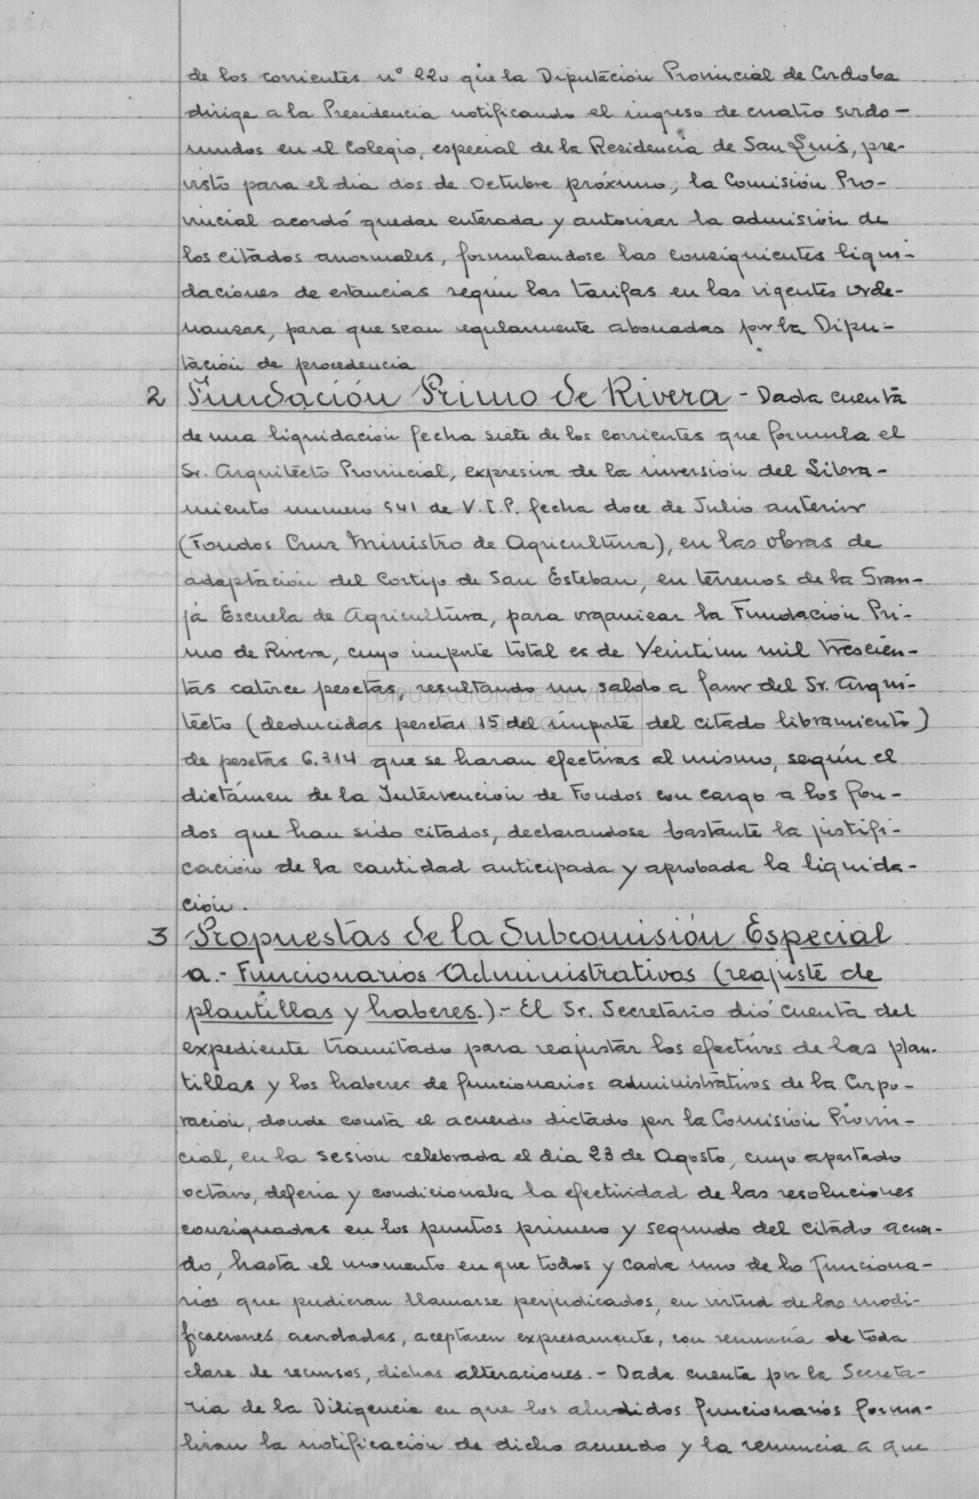 de los corrientes nº 220 que la Diputación Provincial de Cordoba
dirige a la Presidencia notificando el ingreso de cuatro sordo-
mudos en el Colegio, especial de la Residencia de San Luis, pre-
visto para el dia dos de Octubre próximo; la Comisión Pro-
vincial acordó quedar enterada y autorizar la admisión de
los citados anormales, formulandose las consiguientes liqui-
daciones de estancias según las tarifas en las vigentes orde-
nanzas, para que sean regularmente abonadas por la Dipu-
tación de procedencia
2 Fundación Primo de Rivera - Dada cuenta
de una liquidación fecha siete de los corrientes que formula el
Sr. Arquitecto Provincial, expresiva de la inversión del Libra-
miento numero 541 de V.I.P. fecha doce de Julio anterior
(Fondos Cruz Ministro de Agricultura), en las obras de
adaptación del Cortijo de San Esteban, en terrenos de la Gran-
ja Escuela de Agricultura, para organizar la Fundación Pri-
mo de Rivera, cuyo importe total es de Veintiun mil trescien-
tas catorce pesetas, resultando un saldo a favor del Sr. Arqui-
tecto (deducidas pesetas 15 del importe del citado libramiento)
de pesetas 6.314 que se haran efectivas al mismo, según el
dictámen de la Intervención de Fondos con cargo a los fon-
dos que han sido citados, declarandose bastante la justifi-
cación de la cantidad anticipada y aprobada la liquida-
ción.
3 Propuestas de la Subcomisión Especial
a.- Funcionarios Administrativos (reajuste de
plantillas y haberes.).- El Sr. Secretario dió cuenta del
expediente tramitado para reajustar los efectivos de las plan-
tillas y los haberes de funcionarios administrativos de la Corpo-
ración, donde consta el acuerdo dictado por la Comisión Provin-
cial, en la sesión celebrada el dia 23 de Agosto, cuyo apartado
octavo, deferia y condicionaba la efectividad de las resoluciones
consignadas en los puntos primero y segundo del citado acuer-
do, hasta el momento en que todos y cada uno de lo funciona-
rios que pudieran llamarse perjudicados, en virtud de las modi-
ficaciones acordadas, aceptaren expresamente, con renuncia de toda
clase de recursos, dichas alteraciones.- Dada cuenta por la Secreta-
ria de la Diligencia en que los aludidos funcionarios forma-
lizan la notificación de dicho acuerdo y la renuncia a que
DIPUTACIÓN DE SEVILLA